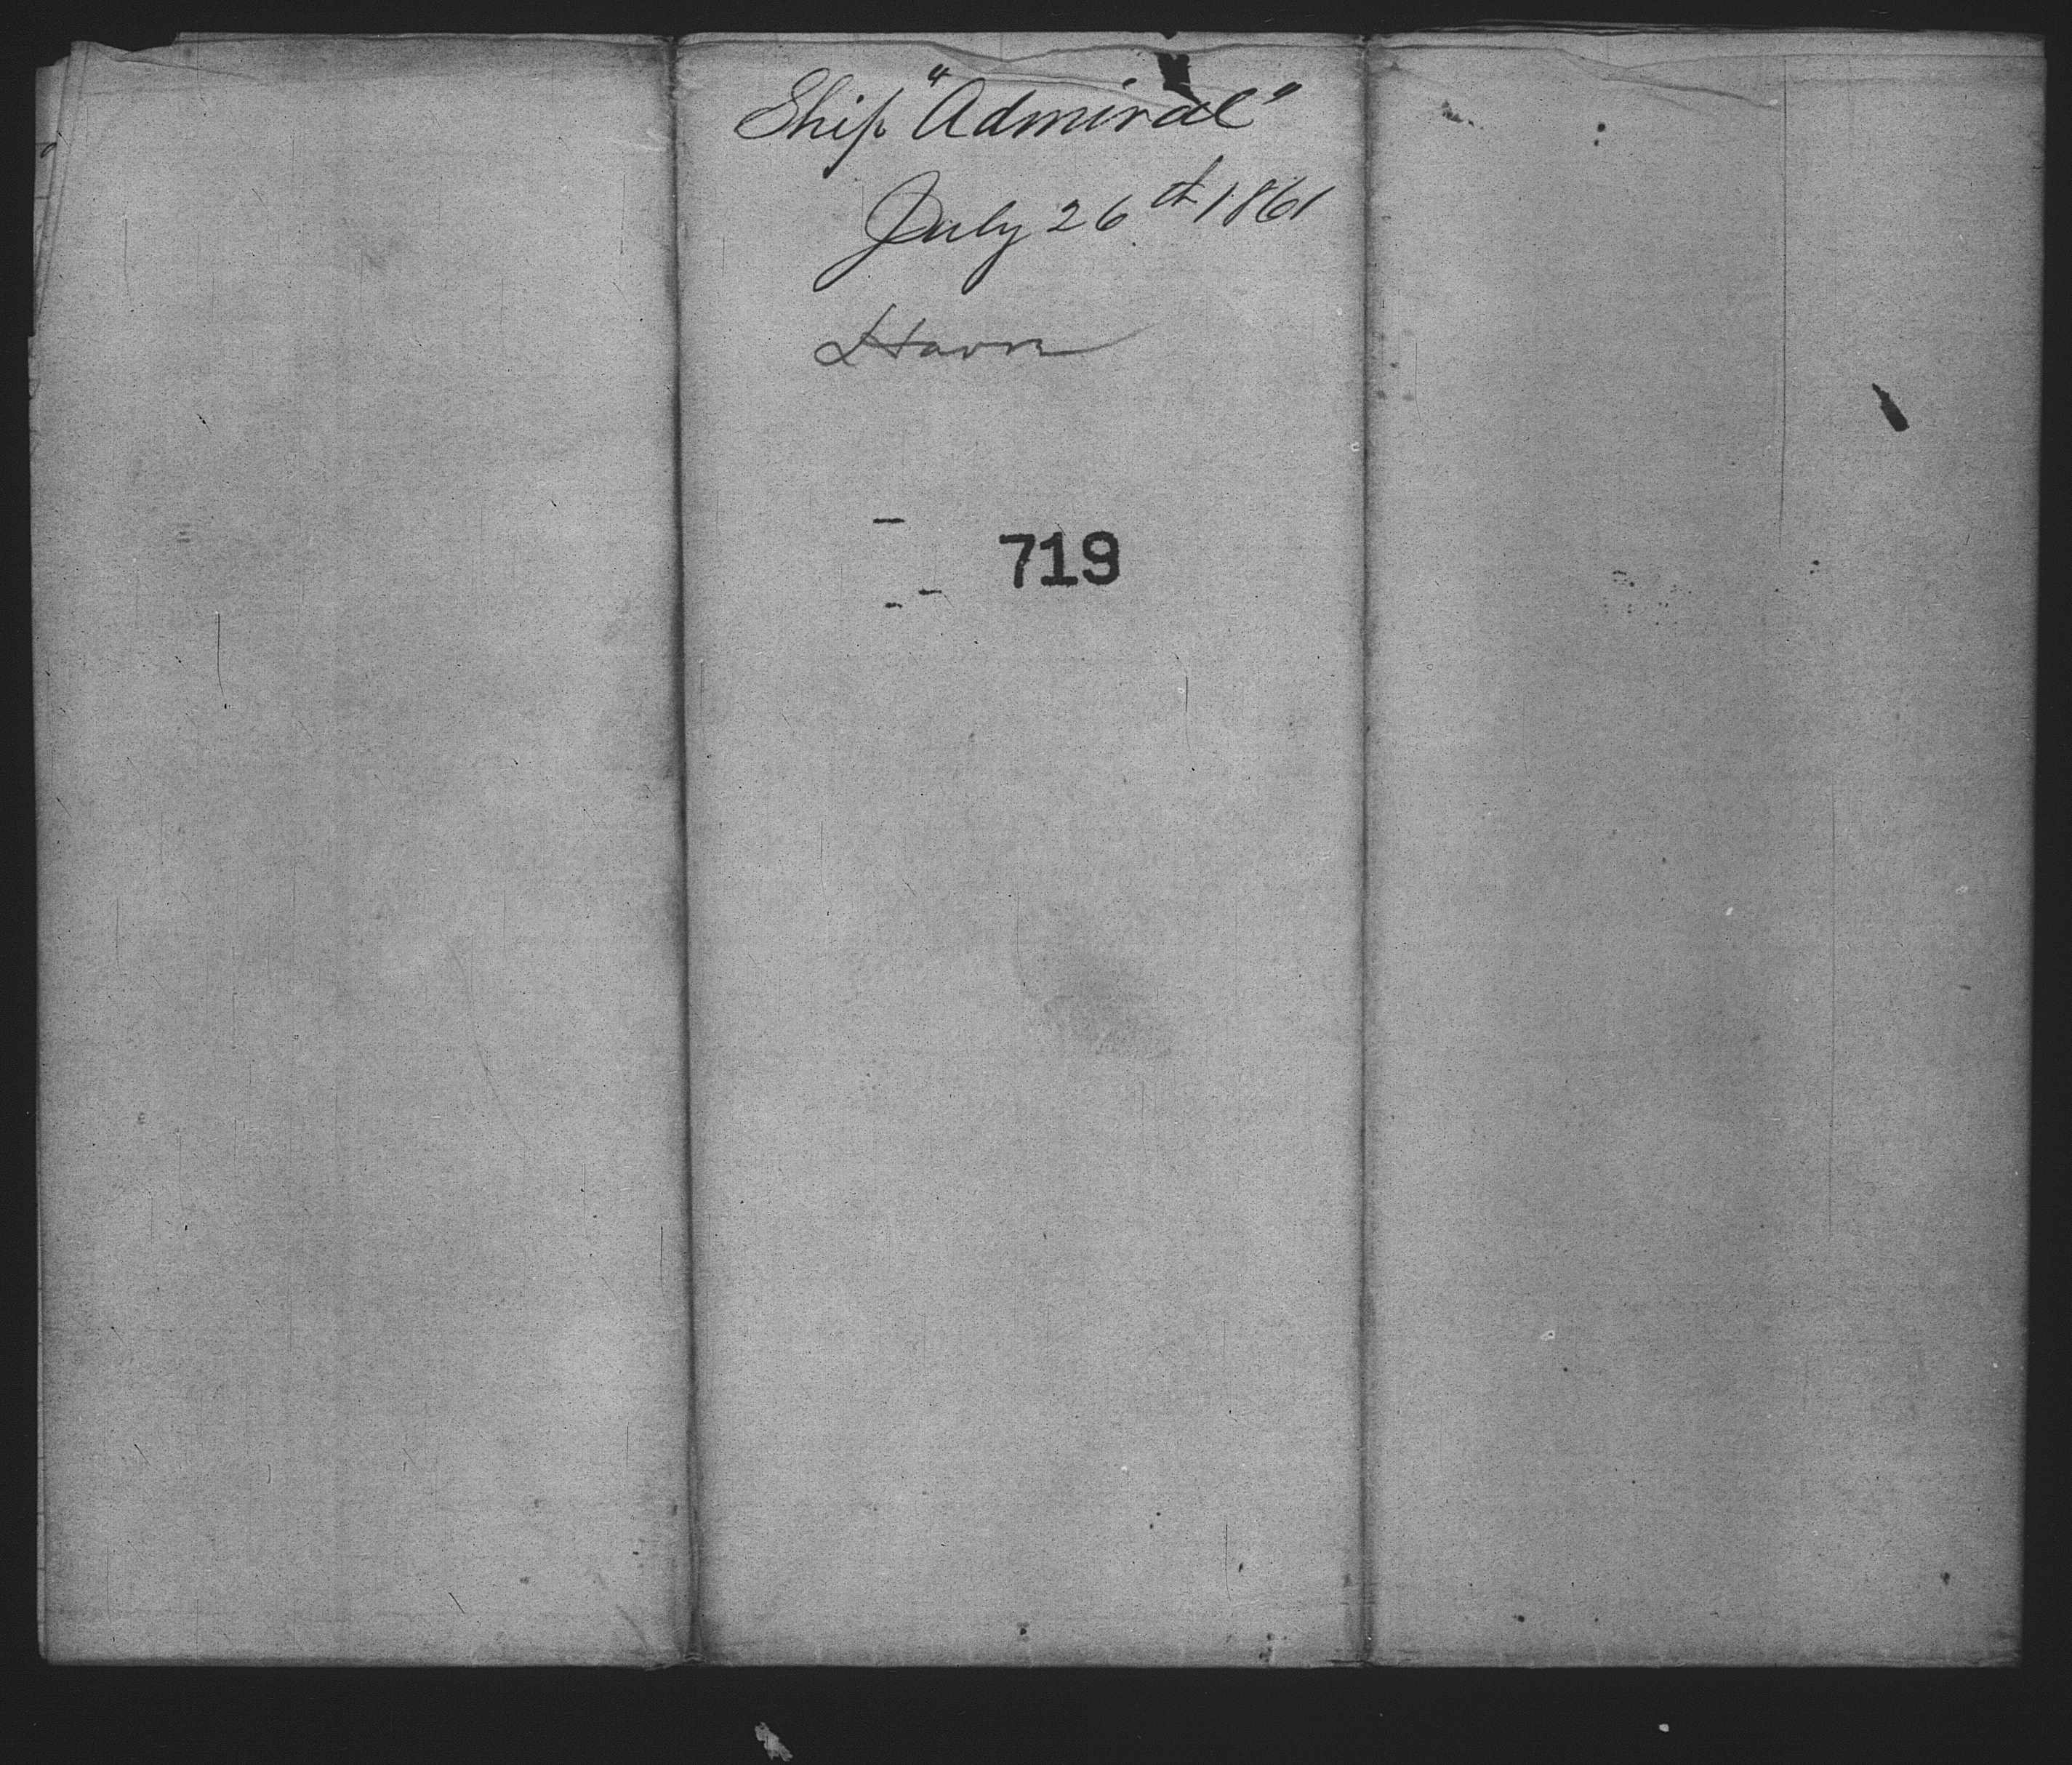 Ship "Admiral"
July 26th 1861
Havre
719